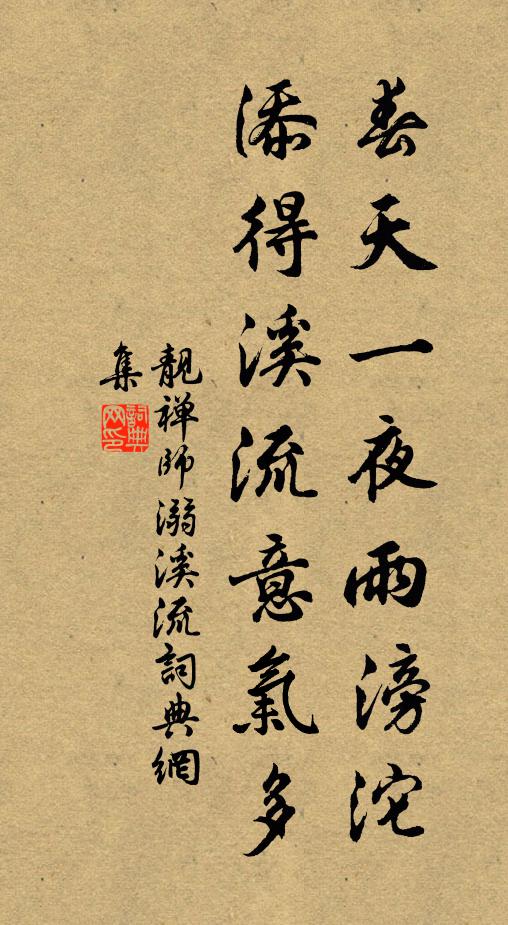 春天一夜雨滂沱
添得溪流意氣多
靚禅師溺溪流詞典網
集
詞典
网印